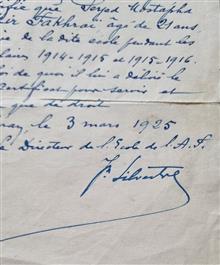 que Seyed Mostapha
Fakhrai agé de 21 ans,
de la dite école pendant les
1914-1915 et 1915-1916.
de quoi il lui a délivré le
certificat pour servir et
que de droit
le 3 mars 1925
Directeur de l'Ecole de l'A.F.
Silvestre